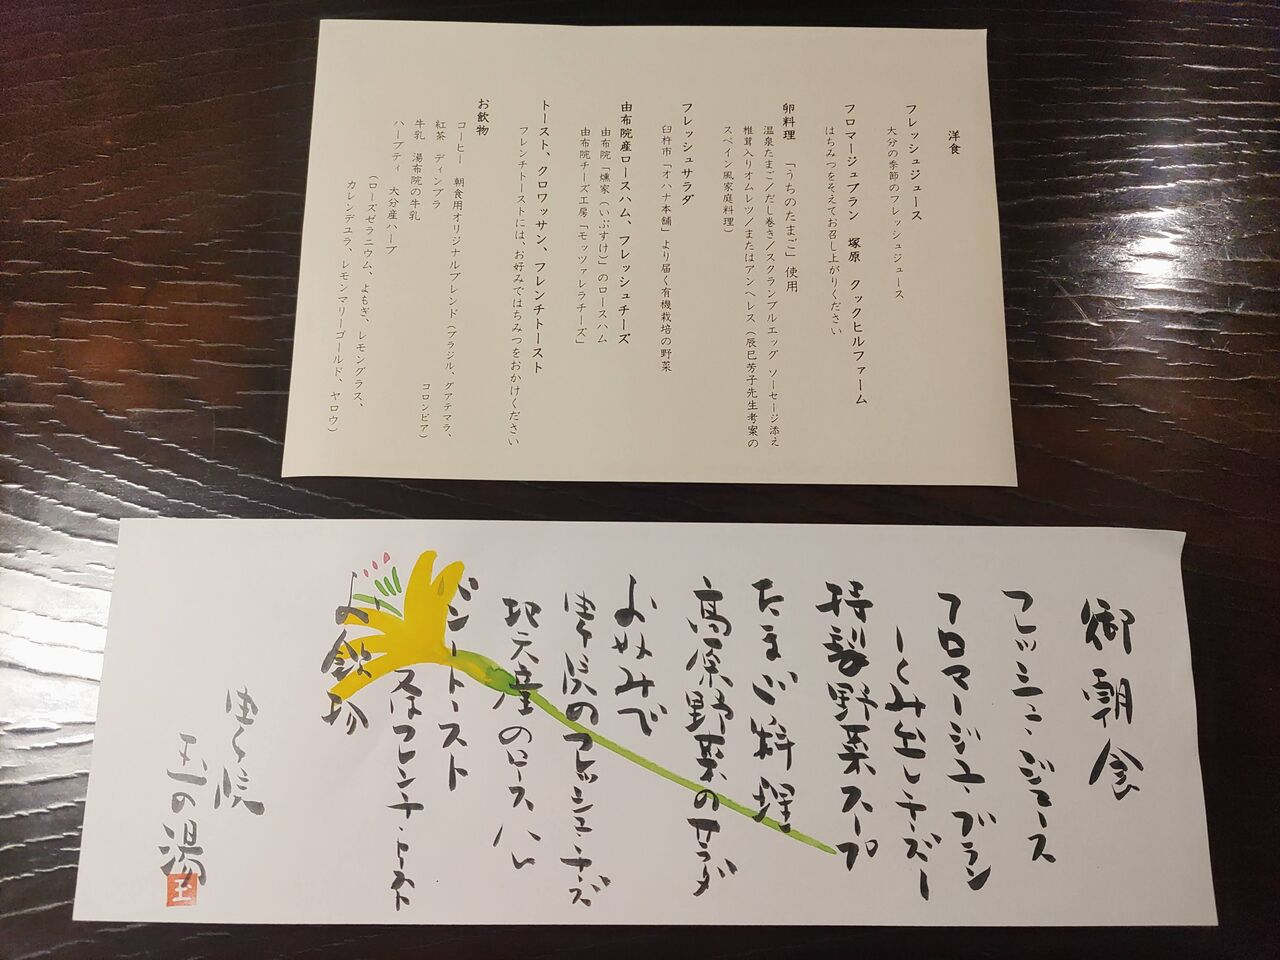 洋食
フレッシュジュース
大分の季節のフレッシュジュース
フロマージュブラン 塚原 クックヒルファーム
はちみつをそえてお召し上がりください
卵料理 「うちのたまご」使用
温泉たまご/だし巻き/スクランブルエッグ ソーセージ添え
椎茸入りオムレツ/またはアンヘレス(辰巳芳子先生考案の
スペイン風家庭料理)
フレッシュサラダ
臼杵市「オハナ本舗」より届く有機栽培の野菜
由布院産ロースハム、フレッシュチーズ
由布院「燻家(いぶすけ)」のロースハム
由布院チーズ工房「モッツァレラチーズ」
トースト、クロワッサン、フレンチトースト
フレンチトーストには、お好みではちみつをおかけください
お飲物
コーヒー 朝食用オリジナルブレンド(ブラジル、グアテマラ、
コロンビア)
紅茶 ディンブラ
牛乳 湯布院の牛乳
ハーブティ 大分産ハーブ
(ローズゼラニウム、よもぎ、レモングラス、
カレンデュラ、レモンマリーゴールド、ヤロウ)
御朝食
フレッシュ・ジュース
フロマージュ・ブラン
ーくみ出しチーズー
特製野菜スープ
たまご料理
高原野菜のサラダ
お好みで
由布院のフレッシュチーズ
地元産のロースハム
パン・トースト
又はフレンチ・トースト
お飲物
由布院
玉の湯
玉